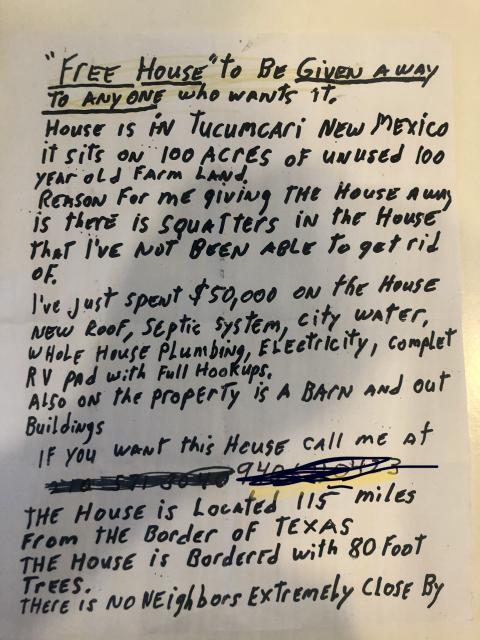 "FREE HOUSE" to BE GIVEN AWAY
TO ANYONE who wants it.
HOUSE is iN TUCUMCARI NEW MEXICO
it sits on 100 ACRES OF unused 100
year old Farm Land.
REASON FOR me giving THE HOUSE AWAY
is there is SQUATTERS in the House
that I've NOT BEEN ABLE to get rid
OF.
I've just spent $50,000 ON the House
NEW ROOF, SEPtic SYStem, city WATER,
WHOLE HOUSE PLUMBING, ELECtRicity, complet
RV PAD with Full HOOKUPS.
Also on the property is A BARN AND out
Buildings
IF YOU WANT this HOUSE CALL ME At
THE HOUSE is LOCATED 115 miles
From the Border of TEXAS
THE HOUSE is BORDERED with 80 Foot
TREES.
THERE is NO NEighbors EXTREMELY CLOSE BY